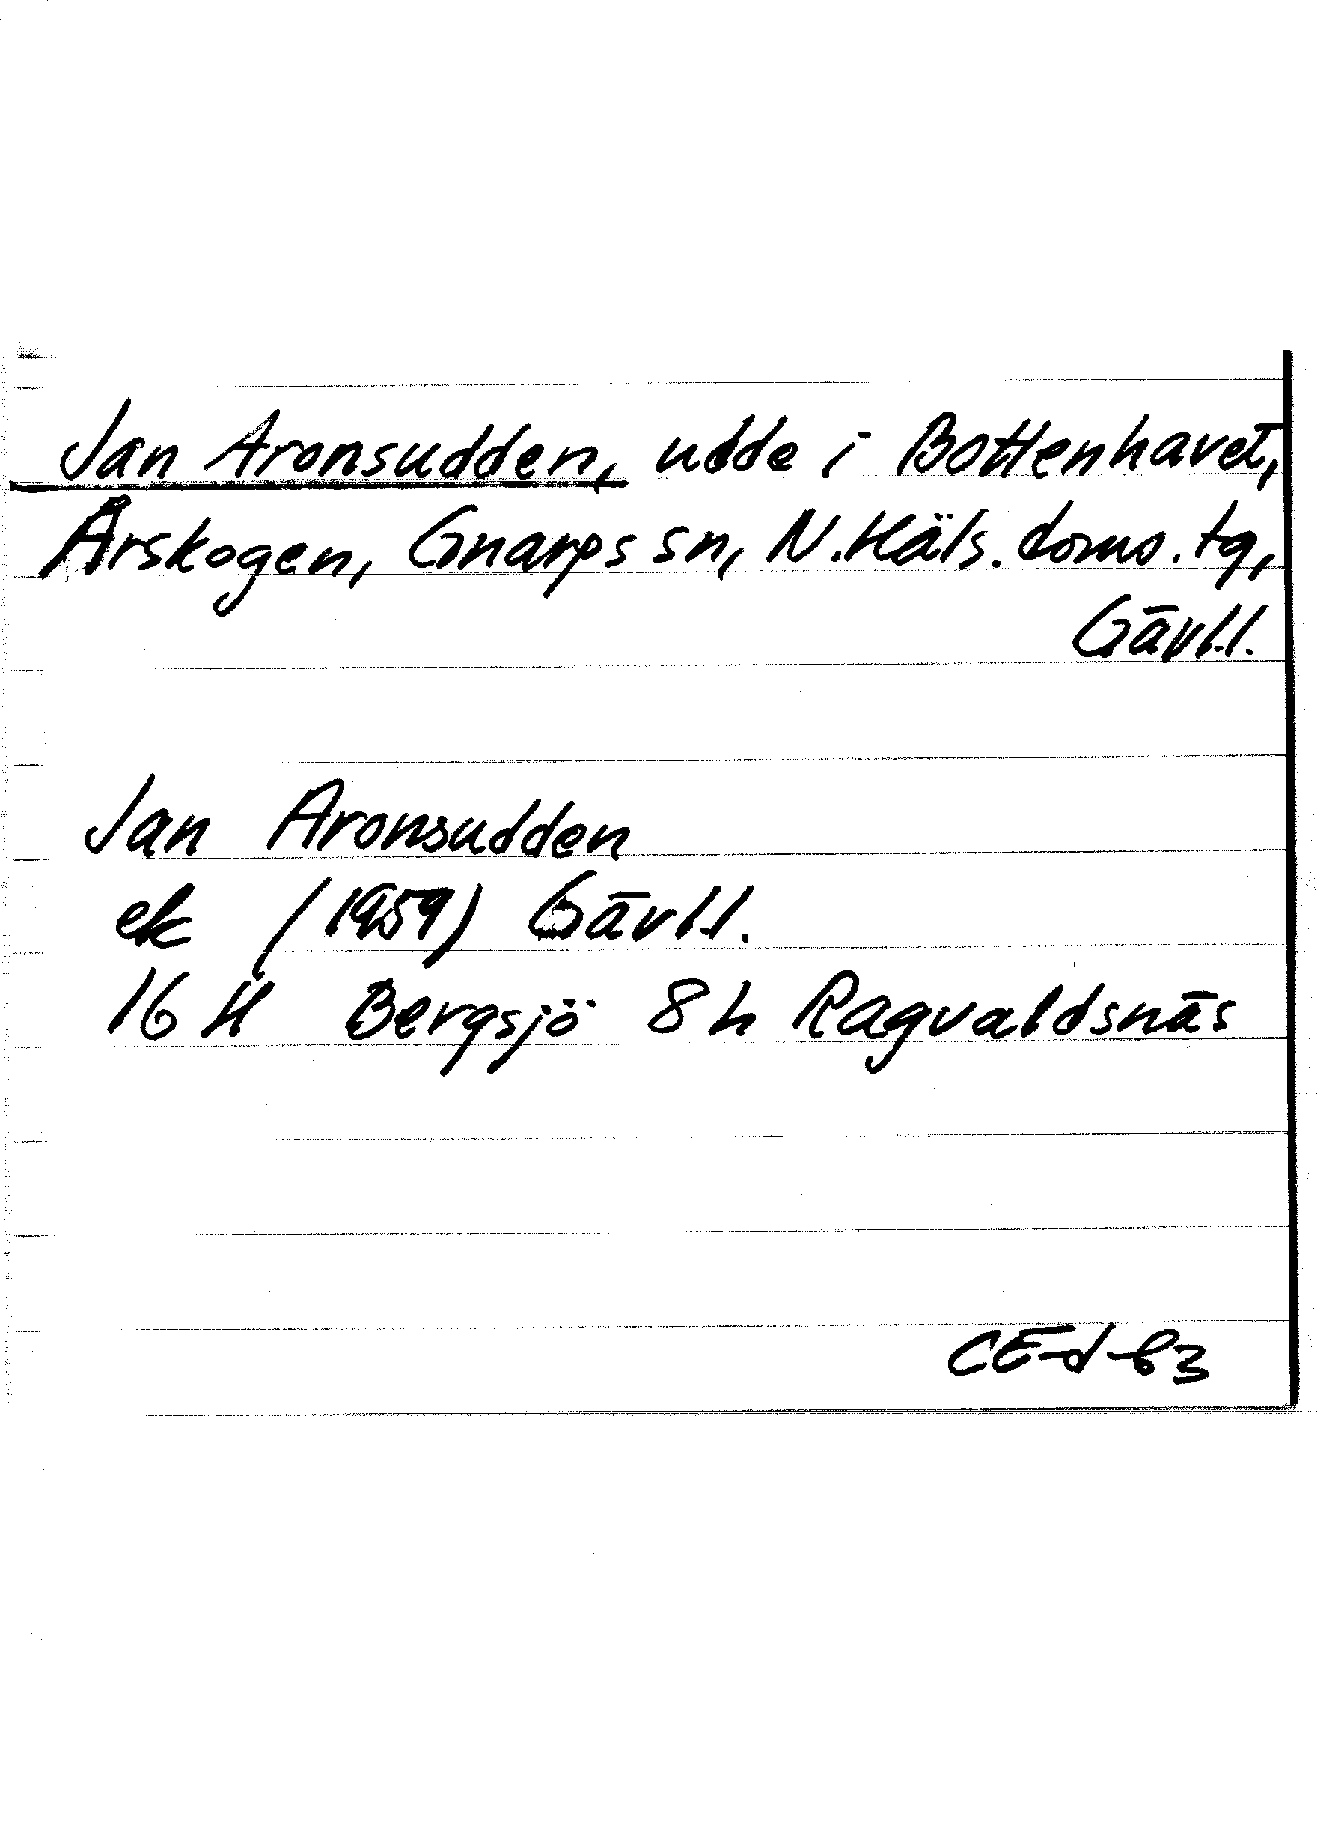 Jan Aronsudden, udde i Bottenhavet,
Årskogen, Gnarps sn, N. Häls. doms. tg,
Gävl.l.
Jan Aronsudden
ek (1959) Gävl.l.
16 H Bergsjö 8 h Ragvaldsnäs